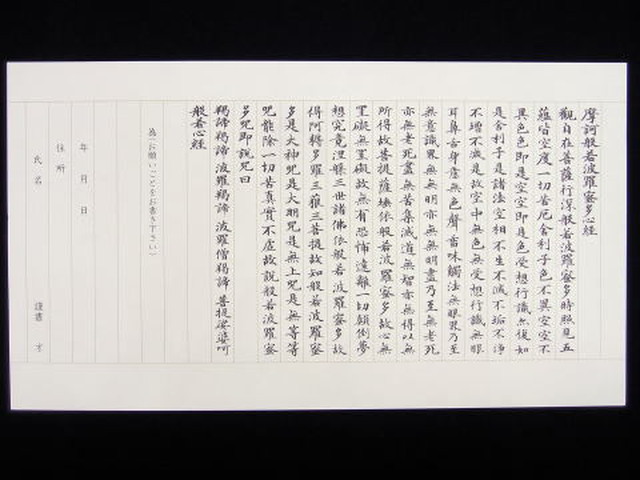 摩訶般若波羅蜜多心経
觀自在菩薩行深般若波羅蜜多時照見五
蘊皆空度一切苦厄舎利子色不異空空不
異色色即是空空即是色受想行識亦復如
是舎利子是諸法空相不生不滅不垢不浄
不増不減是故空中無色無受想行識無眼
耳鼻舌身意無色聲香味觸法無眼界乃至
無意識界無無明亦無無明盡乃至無老死
亦無老死盡無苦集滅道無智亦無得以無
所得故菩提薩埵依般若波羅蜜多故心無
罣礙無罣礙故無有恐怖遠離一切顛倒夢
想究竟涅槃三世諸佛依般若波羅蜜多故
得阿耨多羅三藐三菩提故知般若波羅蜜
多是大神呪是大明呪是無上呪是無等等
呪能除一切苦真實不虚故説般若波羅蜜
多呪即説呪曰
羯諦羯諦 波羅羯諦 波羅僧羯諦 菩提娑婆訶
般若心経
為(お願いごとをお書き下さい)
年 月 日
住所
氏名 謹書 才